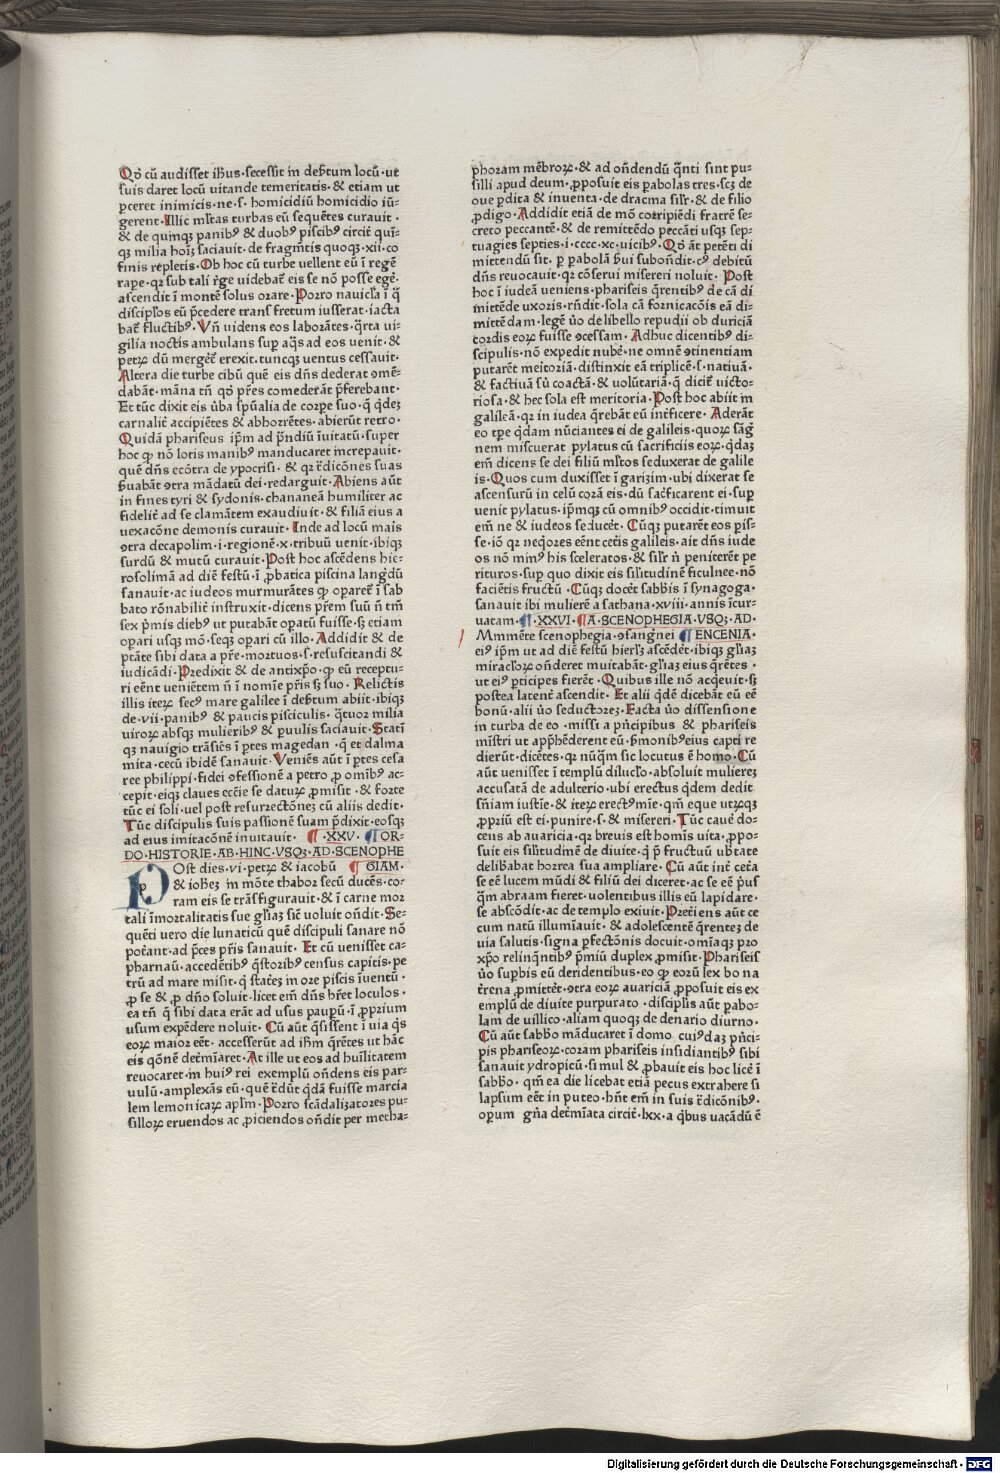 Qđ cū audisset ihus·secessit in desertum locū·ut
suis daret locū uitande temeritatis·& etiam ut
ꝑceret inimicis·ne·s·homicidiū homicidio iū⸗
gerent·Illic mltas turbas eū sequētes curauit·
& de quinqꝫ panibꝰ & duobꝰ piscibꝰ circit̄ quī⸗
qꝫ milia hoīꝫ saciauit·de fragmētis quoqꝫ·xii·co
finis repletis·Ob hoc cū turbe uellent eū ī regē
rape·qꝛ sub tali rege uidebat̄ eis se nō posse egē·
ascendit ī montē solus orare·Porro nauicl̄a ī q̄
discipl̄os eū p̄cedere trans fretum iusserat·iacta
bat̄ fluctibꝰ·Vn̄ uidens eos laborātes·q̄rta ui⸗
gilia noctis ambulans sup aq̄s ad eos uenit·&
petꝝ dū mergēt̄ erexit·tuncqꝫ uentus cessauit·
Altera die turbe cibū quē eis dn̄s dederat ꝯmē⸗
dabāt·māna tn̄ qđ p̄res comederāt p̄ferebant·
Et tūc dixit eis ūba sp̄ualia de corpe suo·q̄ q̄dez
carnalit̄ accipiētes & abhorrētes·abierūt retro·
Quidā phariseus ip̄m ad p̄ndiū īuitatū·super
hoc ꝙ nō lotis manibꝰ manducaret increpauit·
quē dn̄s ecōtra de ypocrisi·& qꝛ t̄dicōnes suas
ẜuabāt ꝯtra mādatū dei·redarguit·Abiens aūt
in fines tyri & sydonis·chananeā humiliter ac
fidelit̄ ad se clamātem exaudiuit·& filiā eius a
uexacōne demonis curauit·Inde ad locū mais
ꝯtra decapolim·i·regionē·x·tribuū uenit·ibiqꝫ
surdū & mutū curauit·Post hoc ascēdens hie⸗
rosolimā ad diē festū·ī ꝓbatica piscina lang̓dū
sanauit·ac iudeos murmurātes ꝙ oparet̄ ī sab
bato rōnabilit̄ instruxit·dicens p̄rem suū n̄ tm̄
sex p̄mis diebꝰ ut putabāt opatū fuisse·sꝫ etiam
opari usqꝫ mō·seqꝫ opari cū illo·Addidit & de
ptāte sibi data a p̄re·mortuos·s·resuscitandi &
iudicādi·Predixit & de antixp̄o·ꝙ eū receptu⸗
ri eēnt ueniētem n̄ ī nomīe p̄ris sꝫ suo·Relictis
illis iteꝝ secꝰ mare galilee ī deẜtum abiit·ibiqꝫ
de·vii·panibꝰ & paucis pisciculis·q̄tuor milia
uiroꝝ absqꝫ mulieribꝰ & puulis saciauit·Stati
qꝫ nauigio trāsiēs ī ptes magedan·q̄ et dalma
mita·cecū ibidē sanauit·Veniēs aūt ī ptes cesa
ree philippi·fidei ꝯfessionē a petro ꝓ omībꝰ ac⸗
cepit·eiqꝫ claues ecc̄ie se datuꝝ ꝓmisit·& forte
tūc ei soli·uel post resurrectōneꝫ cū aliis dedit·
Tūc discipulis suis passionē suam p̄dixit·eosqꝫ
ad eius imitacōnē inuitauit· ¶·XXV·¶OR⸗
DO·HISTORIE·AB·HINC·VSQꝫ·AD·SCENOPHE
POst dies·vi·petꝝ & iacobū ¶ GIAM·
& ioh̄eꝫ in mōte thabor secū ducēs·co⸗
ram eis se trāsfigurauit·& ī carne mor
tali īmortalitatis sue gl̄iaꝫ siē uoluit on̄dit·Se⸗
quēti uero die lunaticū quē discipuli sanare nō
pot̄ant·ad p̄ces p̄ris sanauit·Et cū uenisset ca⸗
pharnaū·accedētibꝰ q̄storibꝰ census capitis·pe
trū ad mare misit·q̄ stat̄eꝫ in ore piscis īuentū·
ꝓ se & ꝓ dn̄o soluit·licet em̄ dn̄s h̄ret loculos·
ea tn̄ q̄ sibi data erāt ad usus paupū·ī ꝓprium
usum expēdere noluit·Cū aūt q̄sissent ī uia q̄s
eoꝝ maior eēt·accesserūt ad ih̄m q̄rētes ut hāc
eis qōnē det̄mīaret·At ille ut eos ad huīlitatem
reuocaret·in huiꝰ rei exemplū on̄dens eis par⸗
uulū·amplexās eū·quē t̄dūt q̄dā fuisse marcia
lem lemonicaꝝ apl̄m·Porro scādalizatores pu⸗
silloꝝ eruendos ac ꝓiciendos on̄dit per metha⸗
phoram mēbroꝝ·& ad on̄dendū q̄nti sint pu⸗
silli apud deum·ꝓposuit eis pabolas tres·scꝫ de
oue pdita & inuenta·de dracma sil̄r·& de filio
ꝓdigo·Addidit etiā de mō corripiēdi fratrē se⸗
creto peccantē·& de remittēdo peccāti usqꝫ sep⸗
tuagies septies·i·cccc·xc·uicibꝰ·Qđ āt petēti di
mittendū sit·p pabolā ẜui subon̄dit·cꝰ debitū
dn̄s reuocauit·qꝛ cōserui misereri noluit·Post
hoc ī iudeā ueniens·phariseis q̄rentibꝰ de cā di
mittēde uxoris·rn̄dit·sola cā fornicacōis eā di⸗
mittēdam·legē ūo de libello repudii ob duriciā
cordis eoꝝ fuisse ꝯcessam·Adhuc dicentibꝰ di⸗
scipulis·nō expedit nubē·ne omnē ꝯtinentiam
putarēt meitoriā·distinxit eā triplicē·s·natiuā·
& factiuā sū coactā·& uolūtariā·q̄ dicit̄ uicto⸗
riosa·& hec sola est meritoria·Post hoc abiit in
galileā·qꝛ in iudea q̄rebāt eū int̄ficere·Aderāt
eo tp̄e q̄dam nūciantes ei de galileis·quoꝝ sāg̓
nem miscuerat pylatus cū sacrificiis eoꝝ·q̄daꝫ
em̄ dicens se dei filiū ml̄tos seduxerat de galile
is·Quos cum duxisset ī garizim·ubi dixerat se
ascensurū in celū corā eis·dū sac̓ficarent ei·sup
uenit pylatus·ip̄mqꝫ cū omnibꝰ occidit·timuit
em̄ ne & iudeos seducēt·Cūqꝫ putarēt eos pis⸗
se·iō qꝛ neq̓ores eēnt cet̄is galileis·ait dn̄s iude
os nō minꝰ his sceleratos·& sil̄r n̄ peniterēt pe
rituros·sup quo dixit eis sil̄itudinē ficulnee·nō
faciētis fructū·Cūqꝫ docēt sabb̄is ī synagoga·
sanauit ibi mulierē a sathana·xviii·annis īcur⸗
uatam·¶·XXVI·¶A·SCENOPHEGIA·VSQꝫ·AD·
Mmmēte scenophegia·ꝯsang̓nei ¶ENCENIA·
eiꝰ ip̄m ut ad diē festū hierl̄ꝫ ascēdēt·ibiqꝫ gl̄iaꝫ
miracl̄oꝝ on̄deret inuitabāt·gl̄iaꝫ eius q̄rētes·
ut eiꝰ pticipes fierēt·Quibus ille nō acq̓euit·sꝫ
postea latent̄ ascendit·Et alii q̓dē dicebāt eū eē
bonū·alii ūo seductoreꝫ·Facta ūo dissensione
in turba de eo·missi a p̓ncipibus & phariseis
mīstri ut app̄hēderent eū·ẜmonibꝰeius capti re
dierūt·dicētes·qꝛ nūq̄m sic locutus ē homo·Cū
aūt uenisset ī templū dilucl̄o·absoluit mulierez
accusatā de adulterio·ubi erectus q̓dem dedit
sn̄iam iustīe·& iteꝝ erectꝰmīe·qm̄ eque utꝝqꝫ
ꝓpriū est ei·punire·s·& misereri·Tūc cauē do⸗
cens ab auaricia·qꝛ breuis est homīs uita·ꝓpo⸗
suit eis silitudinē de diuite·q̄ p̄ fructuū ub̄tate
delib̄abat horrea sua ampliare·Cū aūt int̄ cet̄a
se eē lucem mūdi & filiū dei diceret·ac se eē p̓us
qm̄ abraam fieret·uolentibus illis eū lapidare·
se abscōdit·ac de templo exiuit·Pret̄iens aūt ce
cum natū illumīauit·& adolescentē q̄renteꝫ de
uia salutis·signa ꝑfectōnis docuit·omīaqꝫ pro
xp̄o relinq̄ntibꝰ p̄miū duplex ꝓmisit·Phariseis
ūo supbis eū deridentibus·eo ꝙ eorū lex bona
t̄rena ꝓmittēt·ꝯtra eoꝝ auariciā ꝓposuit eis ex
emplū de diuite purpurato·discipl̄is aūt pabo⸗
lam de uillico·aliam quoqꝫ de denario diurno·
Cū aūt sabb̄o māducaret ī domo cui'daꝫ p̓nci⸗
pis phariseoꝝ·coram phariseis insidiantibꝰ sibi
sanauit ydropicū·simul & ꝓbauit eis hoc licē ī
sabb̄o·qm̄ ea die licebat etiā pecus extrahere si
lapsum eēt in puteo·hn̄t em̄ in suis t̄dicōnibꝰ·
operum gn̄a det̄mīata circit̄·lxx·a q̓bus uacādū ē
Digitalisierung gefördert durch die Deutsche Forschungsgemeinschaft - DFG